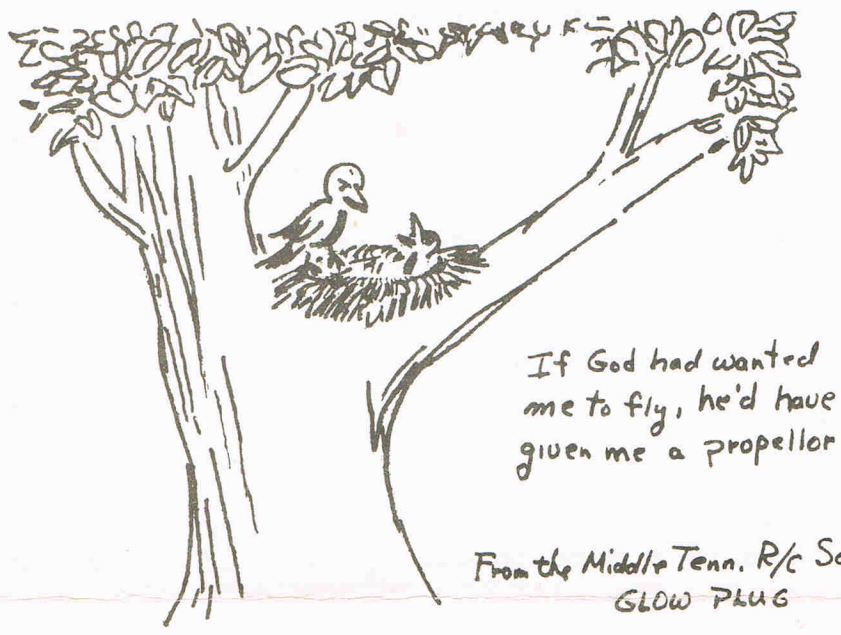 If God had wanted
me to fly, he'd have
given me a propellor
From the Middle Tenn. R/C
GLOW PLUG